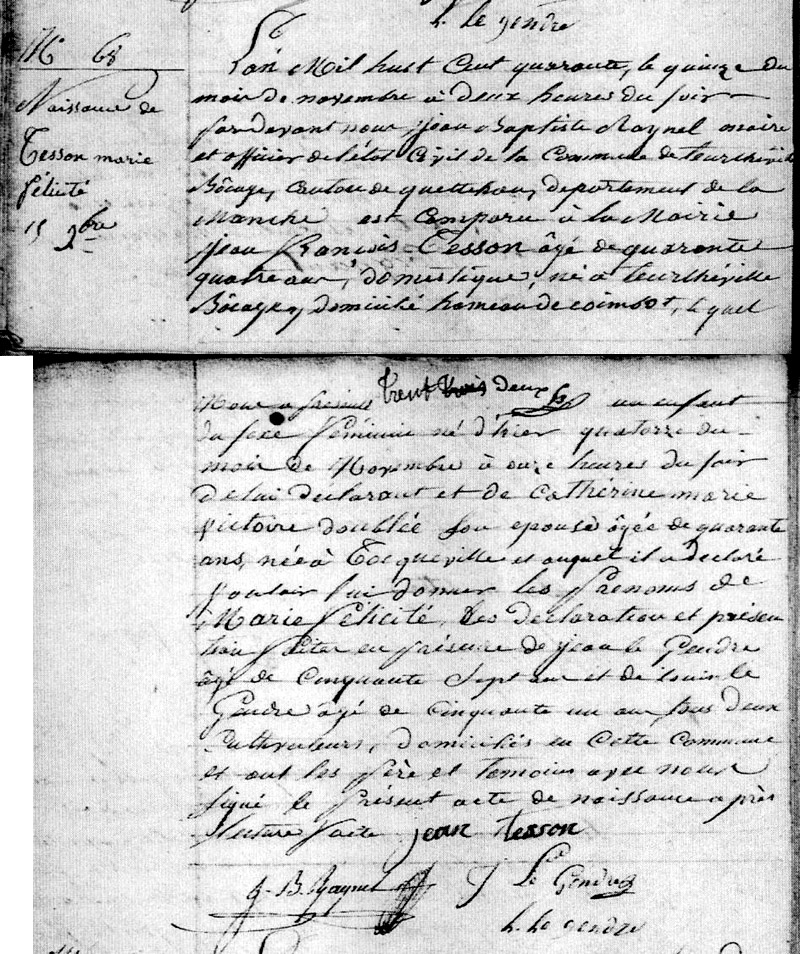 L. Le gendre
N° 68
Naissance de
Tesson marie
félicité
15 9bre
L'an Mil huit Cent quarante, le quinze du
mois de novembre à deux heures du soir
pardevant nous Jean Baptiste Raynel maire
et officier de l'état Civil de la Commune de teurthéville
Bôcage, Canton de quettehou, département de la
Manche est Comparu à la Mairie
Jean françois Tesson âgé de quarante
quatre ans, domestique, né à teurthéville
Bôcage y domicilié hameau de , lequel
trent trois deux
Nous a présenté un enfant
du sexe féminin né d'hier quatorze du
mois de Novembre à onze heures du soir
de lui declarant et de Cathérine marie
Victoire doublée son epouse âgée de quarante
ans, née à Tocqueville et auquel il a déclaré
Vouloir lui donner les Prénoms de
Marie félicité, Les declaration et présen
tion faites en présence de jean le Gendre
âgé de Cinquante Sept ans et de Louis le
Gendre âgé de Cinquante un ans, tous deux
Cultivateurs, domiciliés en Cette Commune
et ont les père et temoins avec nous
signé le présent acte de naissance après
Lecture faite jean tesson
J. B. Raynel J Le Gendre
L. Le gendre